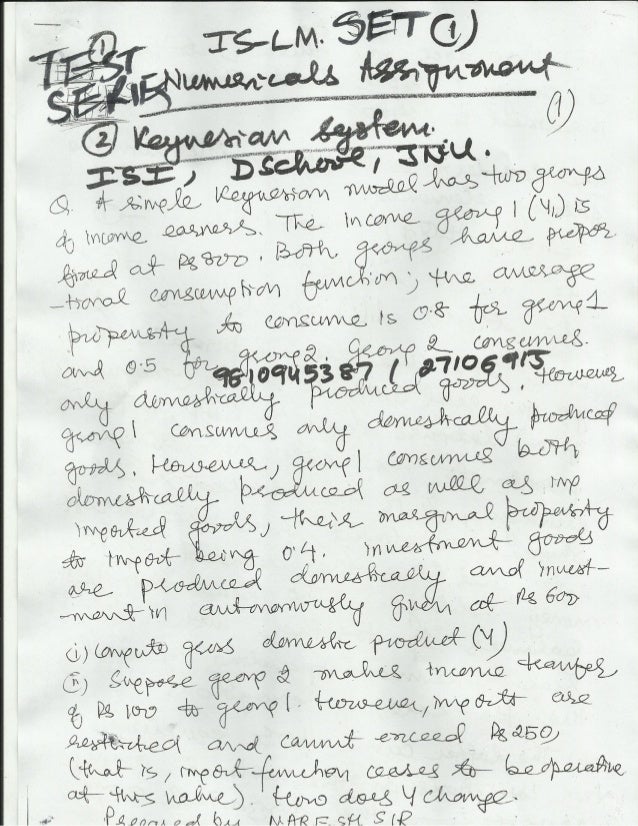 ① IS-LM. SET (1)
TEST
SERIES Numericals Assignment
(1)
② Keynesian System.
ISI, DSchool, JNU.
Q. A simple Keynesian model has two groups
of income earners. The income group 1 (Y1) is
fixed at Rs 800. Both groups have propor
-tional consumption function; the average
propensity to consume is 0.8 for group 1
and 0.5 for group 2. Group 2 consumes
9810945387 / 27106915
only domestically produced goods. However
group 1 consumes only domestically produced
goods. However, group 1 consumes both
domestically produced as well as imp
imported goods, their marginal propensity
to import being 0.4. investment goods
are produced domestically and invest-
-ment in autonomously given at Rs 600
(i) Compute gross domestic product (Y)
(ii) Suppose group 2 makes income tranfer
of Rs 100 to group 1. However, imports are
restricted and cannot exceed Rs 250,
(that is, import function ceases to be operative
at this value). How does Y change.
Prepared by NARESH SIR